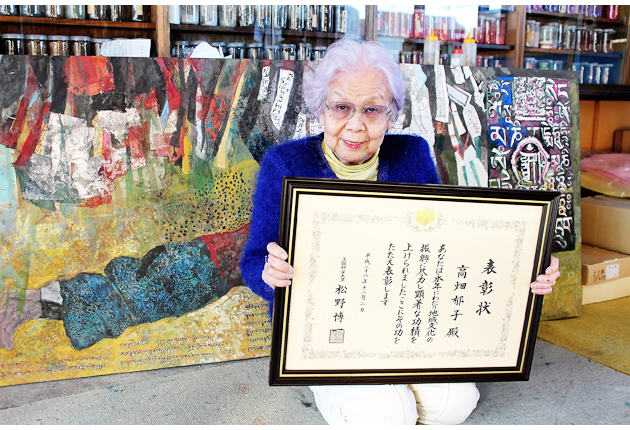 表彰状
高畑郁子殿
あなたは永年にわたり地域文化の
振興に尽力し顕著な功績を
上げられましたここにその功を
たたえ表彰します
平成二十八年十一月二日
文部科学大臣 松野博一